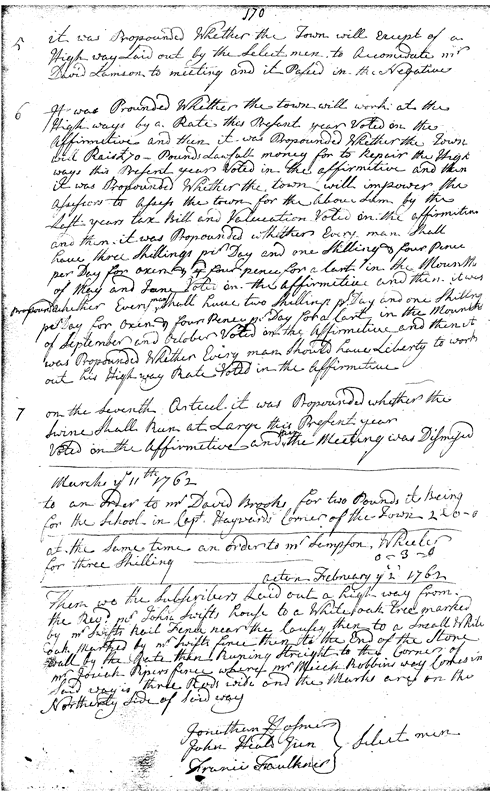 170
5 it was Propounded Whether the Town will Except of a
High way Laid out by the Select men to Acomedate mr
David Lamson to meeting and it Pased in the Negative
6 It was Prounded Whether the town will work at the
High ways by a Rate this Present year Voted in the
Affirmitive and then it was Propounded Whether the Town
will Raish 70 - Pounds Lawfall money for to Repair the High
ways this Present year Voted in the affirmitive and then
it was Propounded Whether the town will impower the
asessors to Asess the town for the above Sum by the
Last years tax Bill and Valueation Voted in the affirmitive
and then it was Propounded whether Every man Shall
have three Shillings pr Day and one Shilling & four Pence
per Day for oxen & four pence for a Cart in the Mounths
of May and June Vote in the Affirmitive and then it was
Propounded whether Every man Shall have two Shillings pr Day and one Shilling
pr Day for oxen & four Pence pr Day for a Cart in the Mounth
of September and October Voted in the Affirmitive and then it
was Propounded Whether Every man Should have Liberty to work
out his High way Rate Voted in the Affirmitive
7 on the Seventh Articul it was Propounded whether the
Swine Shall Run at Large this Present year
Voted in the Affirmitive and then the Meeting was Dismised
March ye 11th 1762
to an order to mr David Brooks for two Pounds it Being
for the School in Capt. Haywards Corner of the Town 2-0-0
at the Same time an order to mr Sempson Wheeler
for three Shilling 0-3-0
acton February ye 2 1762
Then we the Subscribers Laid out a high way from
the Revd mr John Swifts House to a White oak tree marked
by mr Swifts Rail Fence near the Causey then to a Small White
oak Marked by mr Swifts fence then to the End of the Stone
Wall by the Gate then Runing Straight to the Corner of
mr Josiah Pipers fence where mr Micek Robbins way Comes in
Said way is three Rods wide and the Marks are on the
Northerly Side of Said way
Jonathan Hosmer
John Heald Jun
Francis Faulkner
Select men